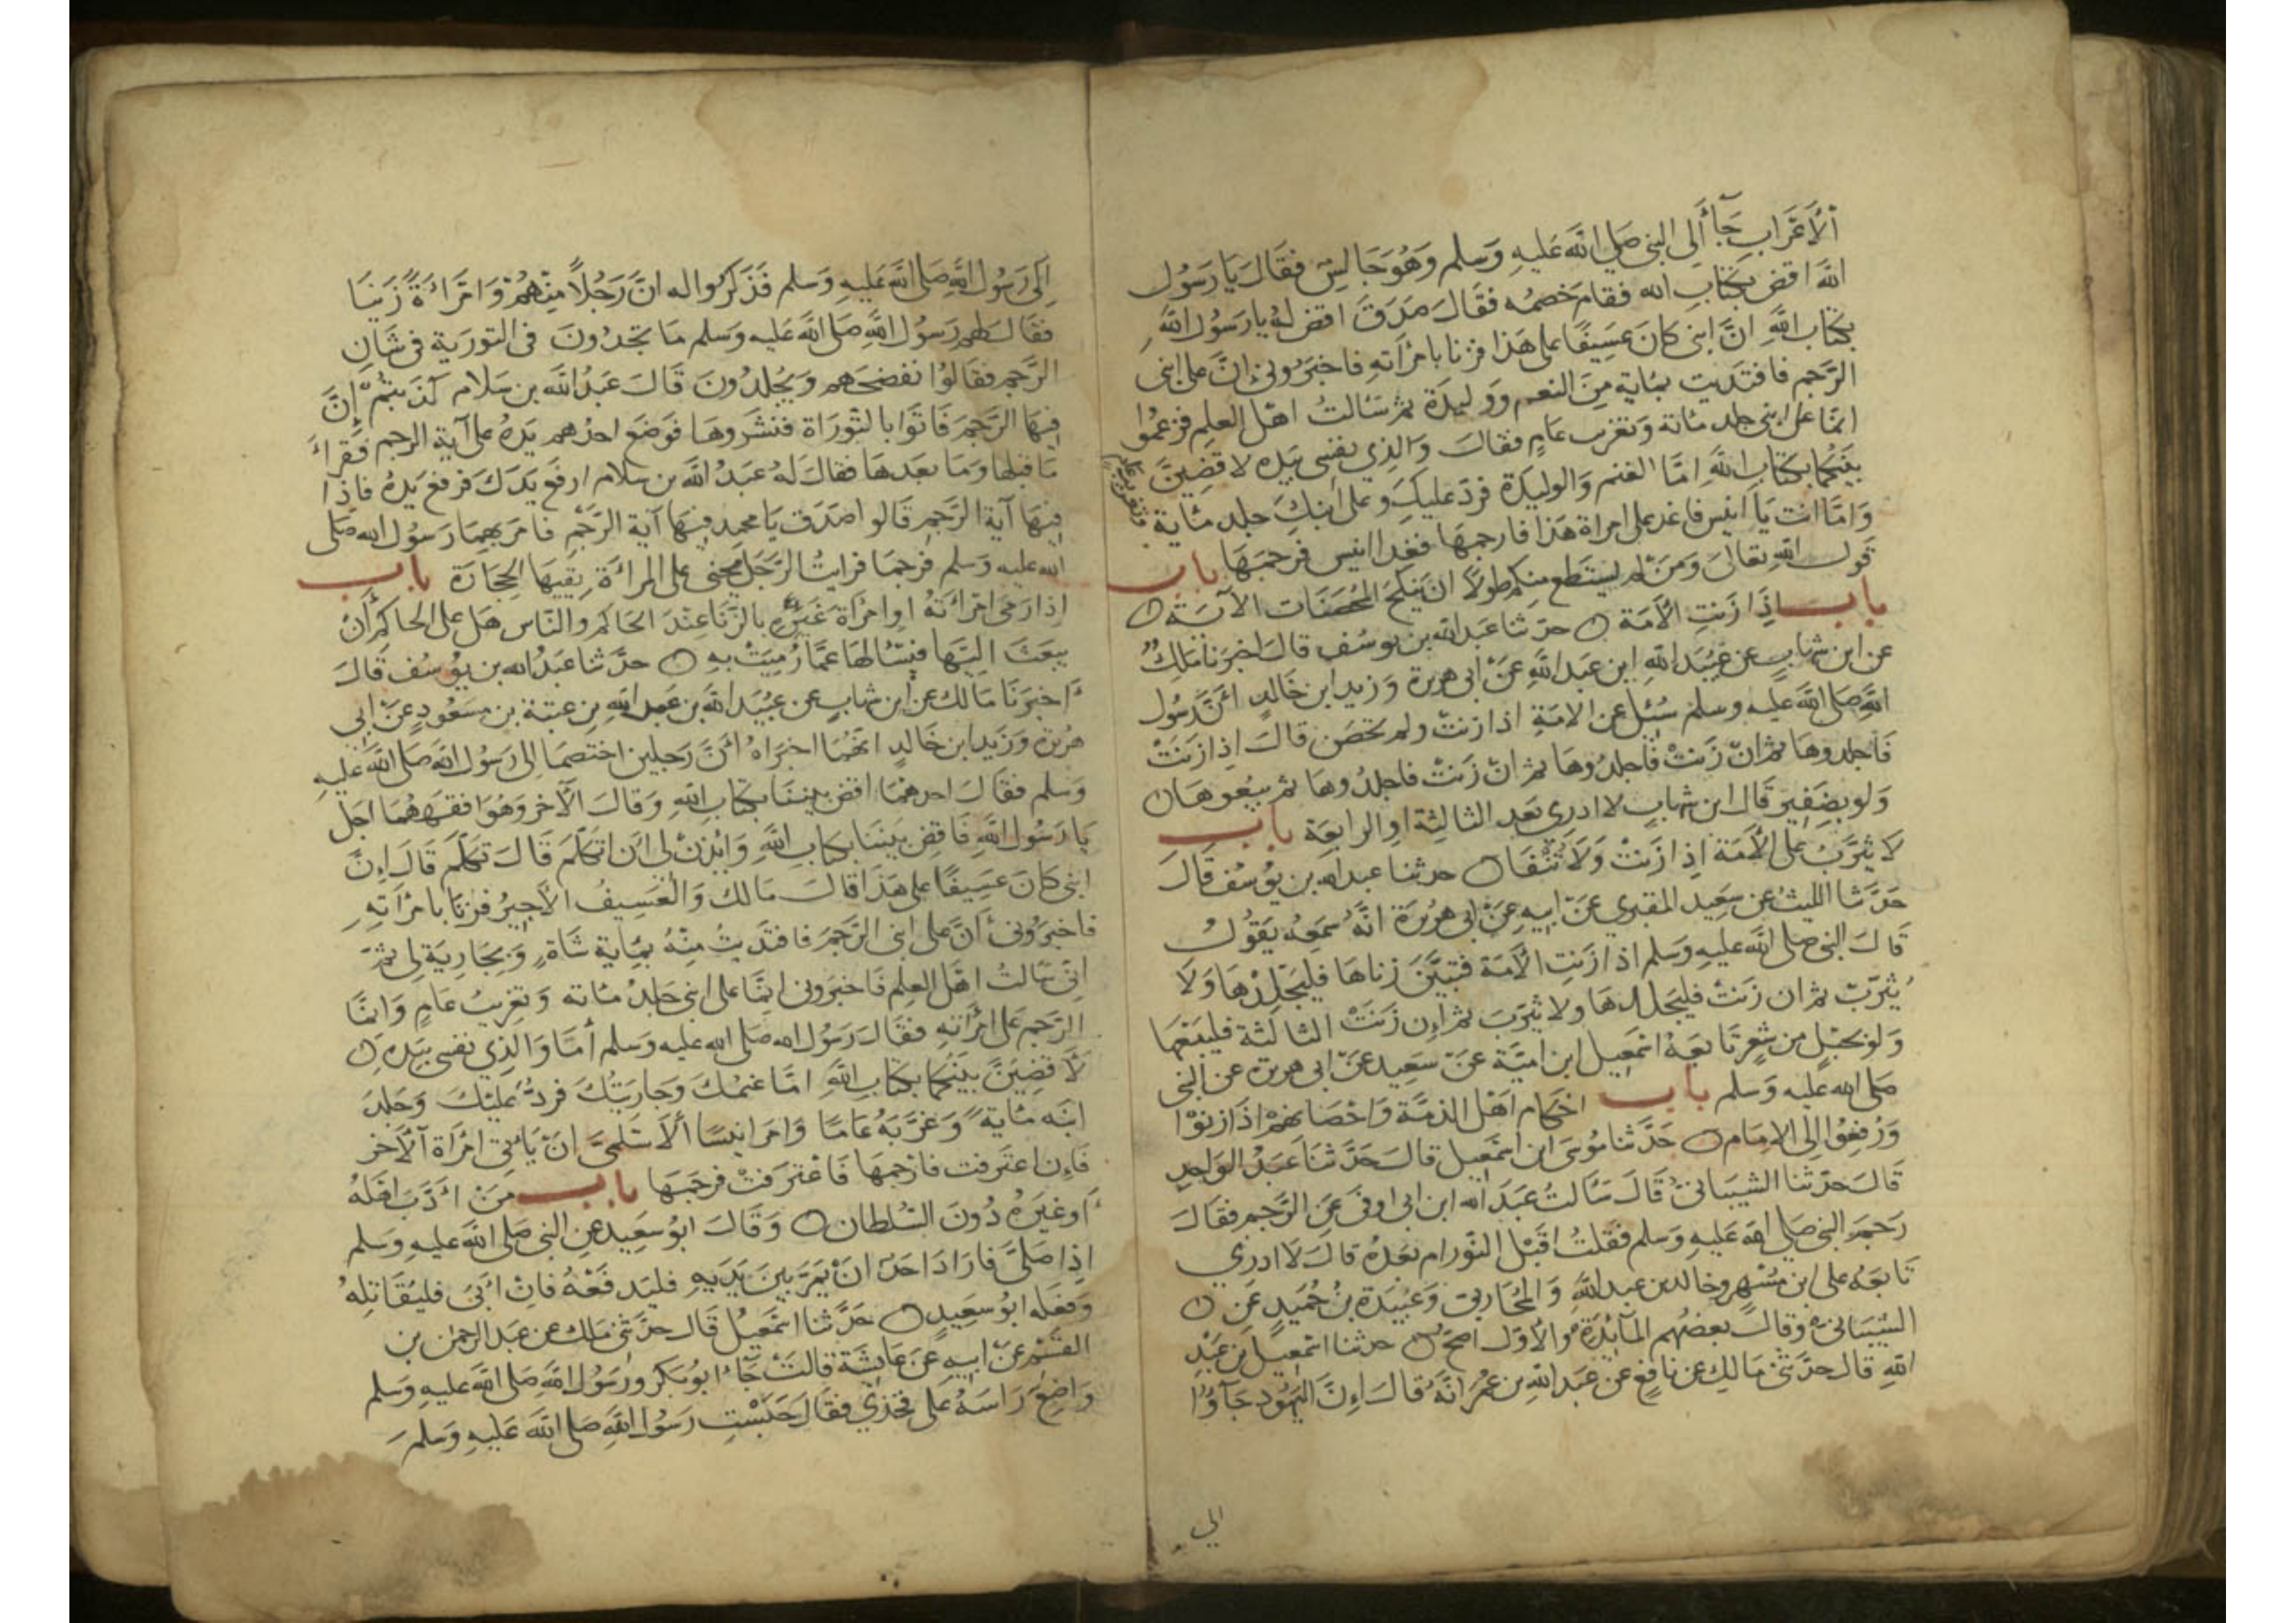 الأعراب جآ ألى النبى صلى الله عليه وسلم وهو جالس فقال يا رسول
الله اقض بكتاب الله فقام خصمه فقال صدق اقض له يا رسول الله
بكتاب الله ان ابنى كان عسيفا على هذا فزنا بامرأته فاخبرونى ان على ابنى
الرجم فافتديت بماية من النعم ووليدة ثم سالت اهل العلم فزعموا
انما على ابنى جلد مائة وتغريب عام فقال والذي نفسى بيده لاقضين
بينكما بكتاب الله اما الغنم والوليدة فرد عليك وعلى ابنك جلد ماية
وتغريب عام
واما انت يا انيس فاغد على امراة هذا فارجمها فغدا انيس فرجمها باب
قول الله تعالى ومن لم يستطع منكم طولا ان ينكح المحصنات الآية
باب اذا زنت الأمة حدثنا عبد الله بن يوسف قال اخبرنا مالك
عن ابن شهاب عن عبيد الله ابن عبد الله عن ابى هريرة وزيد ابن خالد أن رسول
الله صلى الله عليه وسلم سئل عن الامة اذا زنت ولم تحصن قال اذا زنت
فاجلدوها ثم ان زنت فاجلدوها ثم ان زنت فاجلدوها ثم بيعوها
ولو بضفير قال ابن شهاب لا ادرى بعد الثالثة او الرابعة باب
لا يثرب على الأمة اذا زنت ولا تنفا حدثنا عبد الله بن يوسف قال
حدثنا الليث عن سعيد المقبري عن ابيه عن ابى هريرة انه سمعه يقول
قال النبى صلى الله عليه وسلم اذا زنت الأمة فتبين زناها فليجلدها ولا
يثرب ثم ان زنت فليجلدها ولا يثرب ثم إن زنت الثالثة فليبعها
ولو بحبل من شعر تابعه اسمعيل ابن امية عن سعيد عن ابى هريرة عن النبى
صلى الله عليه وسلم باب احكام اهل الذمة واحصانهم اذا زنوا
ورفعوا الى الامام حدثنا موسى ابن اسمعيل قال حدثنا عبد الواحد
قال حدثنا الشيبانى قال سالت عبد الله ابن ابى اوفى عن الرجم فقال
رجم النبى صلى الله عليه وسلم فقلت اقبل النور ام بعده قال لا ادرى
تابعه على ابن مسهر وخالد بن عبد الله والمحاربى وعبيدة بن حميد عن
الشيبانى وقال بعضهم المائدة والاول اصح حدثنا اسمعيل بن عبد
الله قال حدثنى مالك عن نافع عن عبد الله بن عمر انه قال إن اليهود جآؤا
الى
إلى رسول الله صلى الله عليه وسلم فذكروا له ان رجلا منهم وامراءة زنيا
فقال لهم رسول الله صلى الله عليه وسلم ما تجدون فى التورية فى شان
الرجم فقالوا نفضحهم ويجلدون قال عبد الله بن سلام كذبتم إن
فيها الرجم فاتوا بالتوراة فنشروها فوضع احدهم يده على آية الرجم فقرأ
ما قبلها وما بعدها فقال له عبد الله بن سلام ارفع يدك فرفع يده فاذا
فيها آية الرجم قالوا صدق يا محمد فيها آية الرجم فامر بهما رسول الله صلى
الله عليه وسلم فرجما فرايت الرجل يحنى على المراءة يقيها الحجارة باب
اذا رمى امراءته او امرأة غيره بالزنا عند الحاكم والناس هل على الحاكم أن
يبعث اليها فيسالها عما رميت به حدثنا عبد الله بن يوسف قال
اخبرنا مالك عن ابن شهاب عن عبيد الله بن عبد الله بن عتبة بن مسعود عن ابى
هريرة وزيد ابن خالد انهما اخبراه أن رجلين اختصما الى رسول الله صلى الله عليه
وسلم فقال احدهما اقض بيننا بكتاب الله وقال الآخر وهو افقههما اجل
يا رسول الله فاقض بيننا بكتاب الله وايذن لى أن اتكلم قال تكلم قال إن
ابنى كان عسيفا على هذا قال مالك والعسيف الأجير فزنا بامرأته
فاخبرونى أن على ابنى الرجم فافتديت منه بماية شاة وبجارية لى ثم
انى سالت اهل العلم فاخبرونى انما على ابنى جلد مائة وتغريب عام وانما
الرجم على امرأته فقال رسول الله صلى الله عليه وسلم أما والذي نفسى بيده
لاقضين بينكما بكتاب الله اما غنمك وجاريتك فرد عليك وجلد
ابنه ماية وغربه عاما وامر انيسا ألاسلمى ان ياتى امرأة الآخر
فإن اعترفت فارجمها فاعترفت فرجمها باب من ادب اهله
أو غيره دون السلطان وقال ابو سعيد عن النبى صلى الله عليه وسلم
اذا صلى فاراد احد ان يمر بين يديه فليدفعه فان أبى فليقاتله
وفعله ابو سعيد حدثنا اسمعيل قال حدثنى مالك عن عبد الرحمن بن
القسم عن ابيه عن عايشة قالت جاء ابو بكر ورسول الله صلى الله عليه وسلم
واضع راسه على فخذي فقال حبست رسول الله صلى الله عليه وسلم